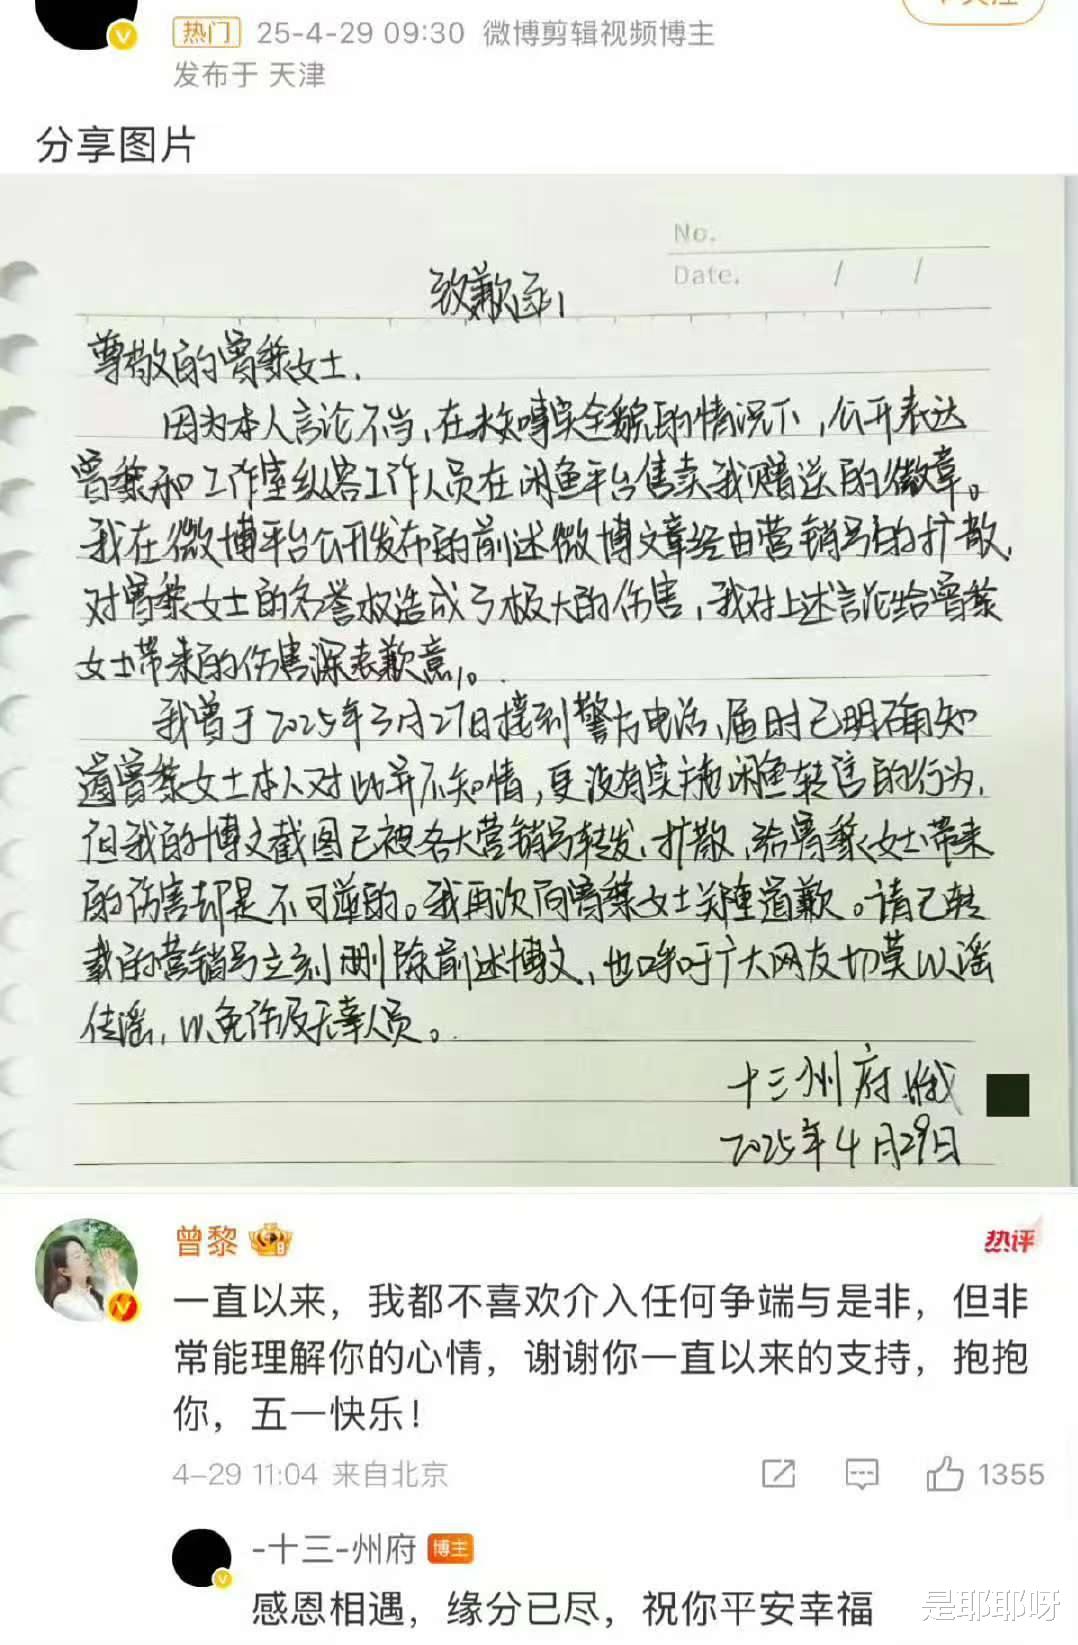 热门 25-4-29 09:30 微博剪辑视频博主
发布于 天津
分享图片
No.
Date. / /
致歉函
尊敬的曾黎女士.
因为本人言论不当,在未知事实全貌的情况下,公开表达
曾黎和工作室纵容工作人员在闲鱼平台售卖我赠送的徽章。
我在微博平台公开发布的前述微博文章经由营销号的扩散,
对曾黎女士的名誉权造成了极大的伤害,我对上述言论给曾黎
女士带来的伤害深表歉意。
我曾于2025年3月27日接到警方电话,届时已明确知
道曾黎女士本人对此并不知情,更没有实施闲鱼转售的行为,
但我的博文截图已被各大营销号转发、扩散,给曾黎女士带来
的伤害却是不可逆的。我再次向曾黎女士郑重道歉。请已转
载的营销号立刻删除前述博文,也呼吁广大网友切莫以谣
传谣,以免伤及无辜人员。
十三州府
2025年4月29日
曾黎
热评
一直以来，我都不喜欢介入任何争端与是非，但非
常能理解你的心情，谢谢你一直以来的支持，抱抱
你，五一快乐！
4-29 11:04 来自北京 1355
-十三-州府 博主
感恩相遇，缘分已尽，祝你平安幸福
是耶耶呀